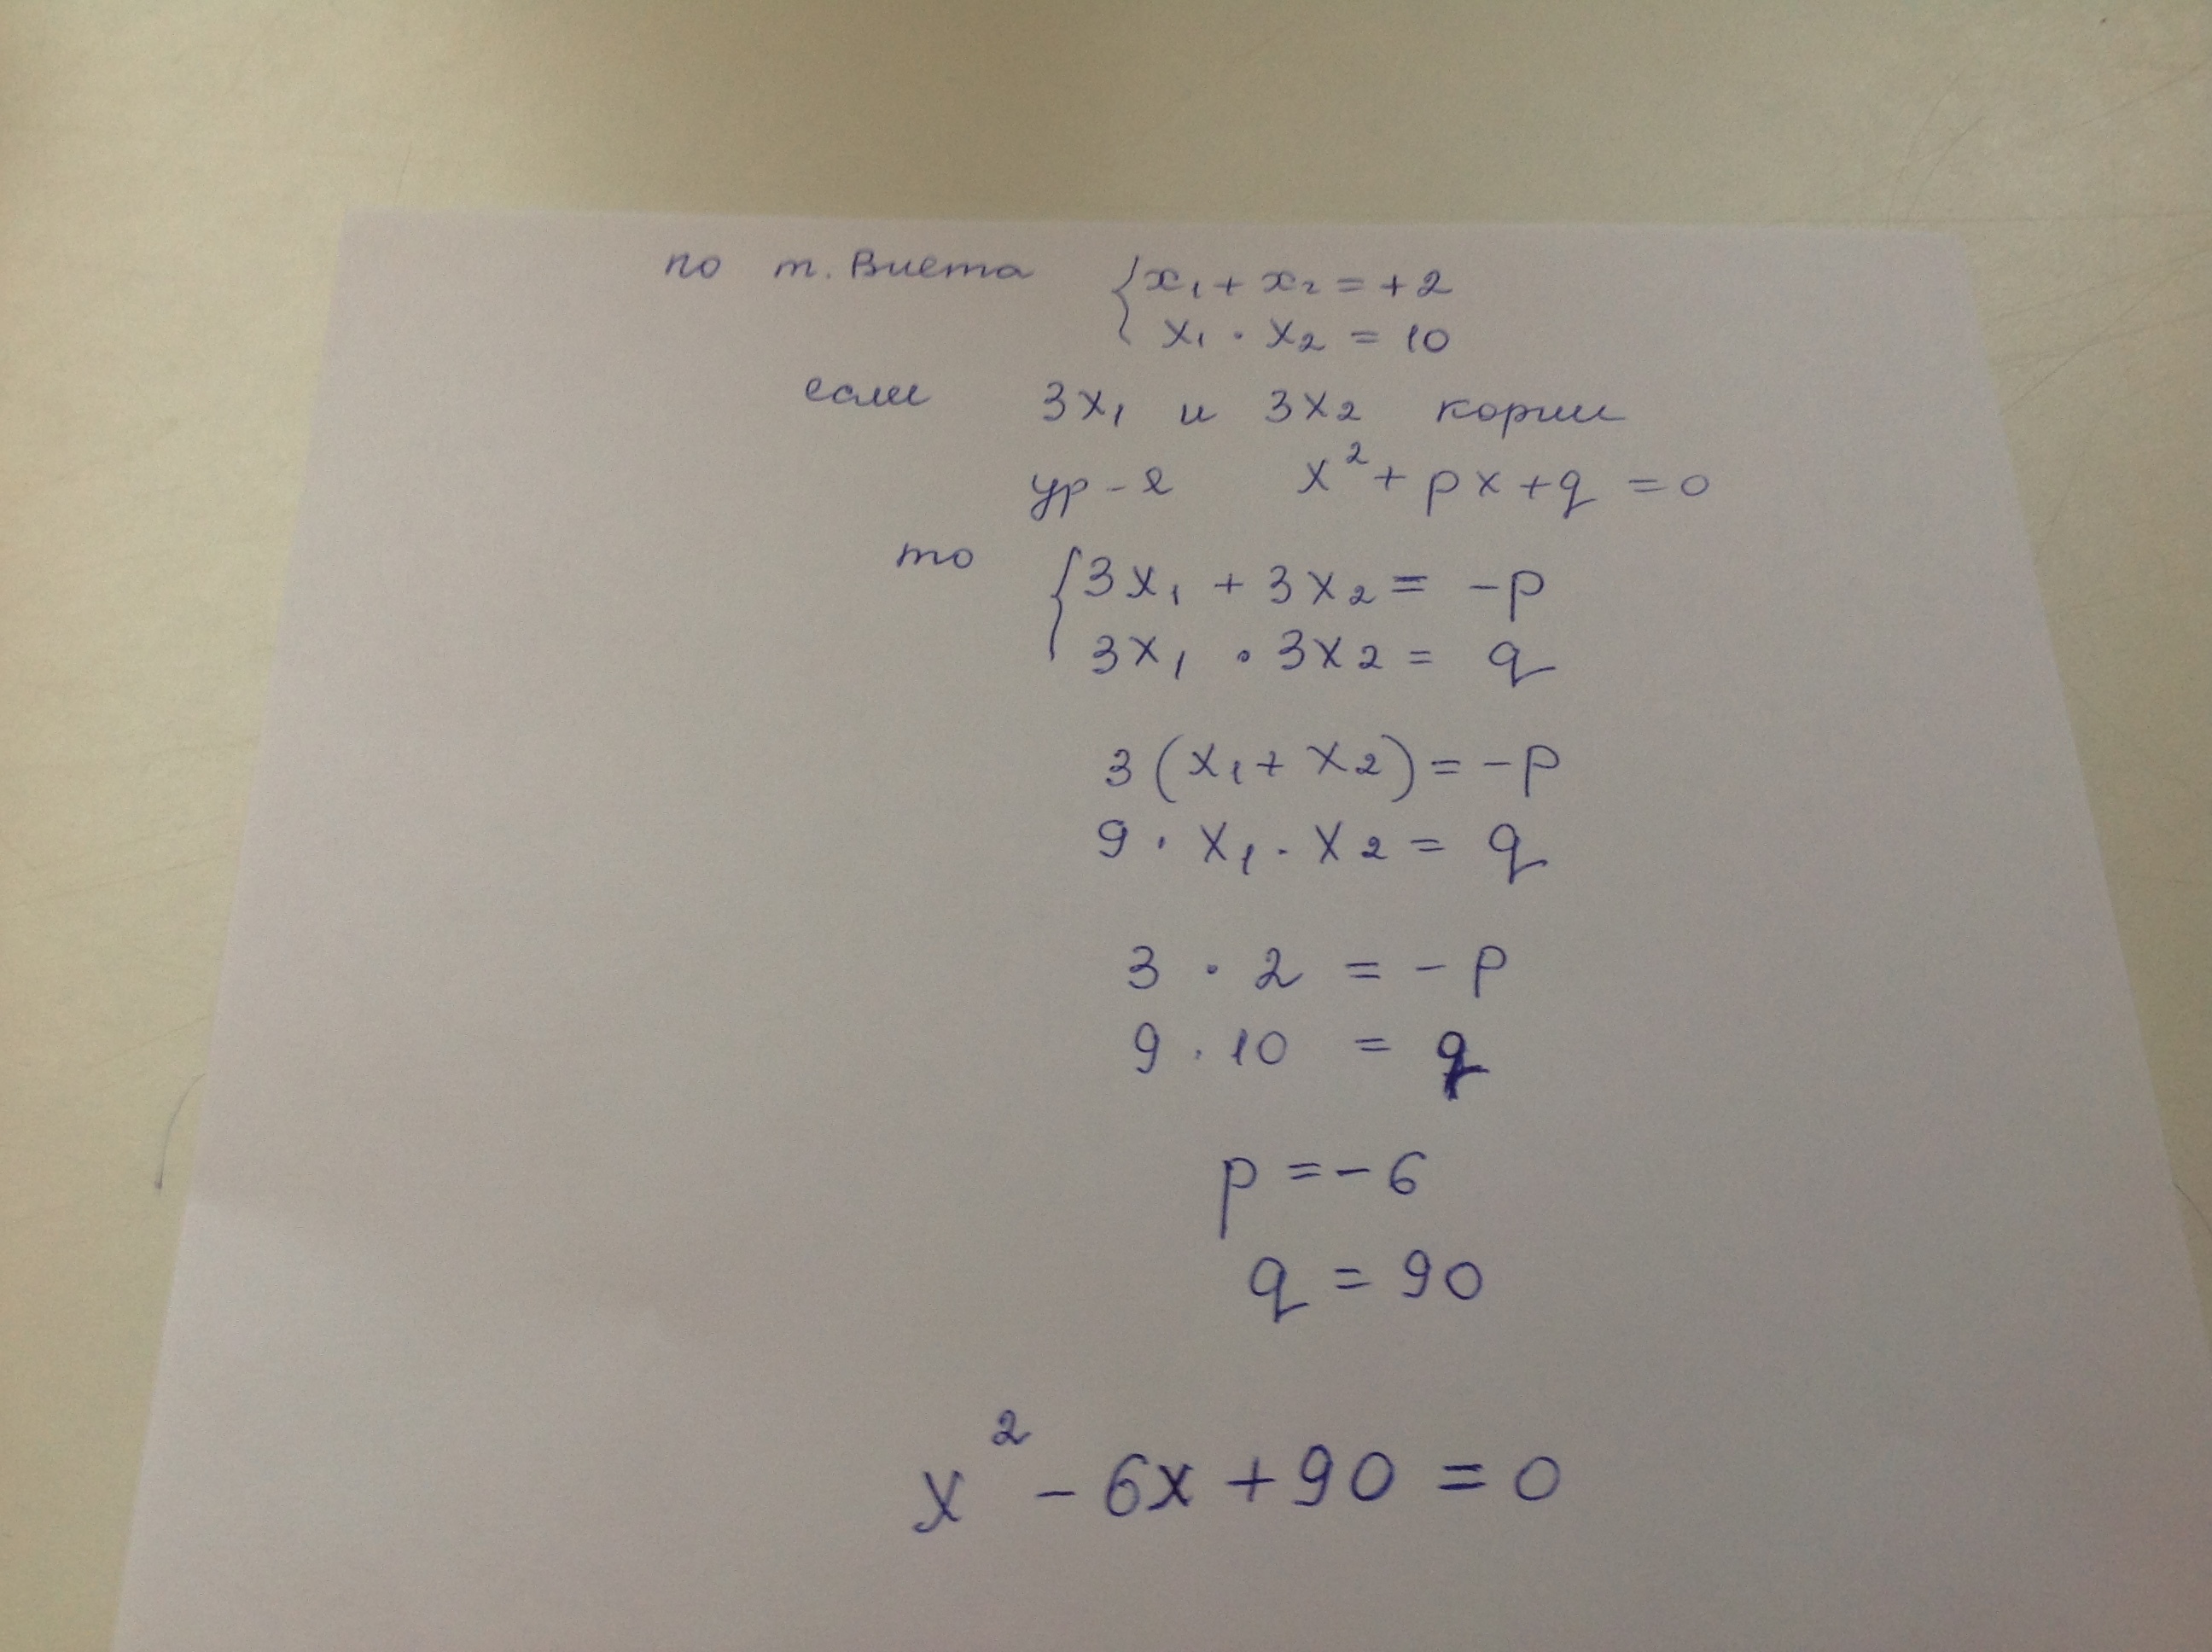 по т. Виета { x₁ + x₂ = +2
x₁ · x₂ = 10
если 3x₁ и 3x₂ корни
ур-я x² + px + q = 0
то { 3x₁ + 3x₂ = -p
3x₁ · 3x₂ = q
3(x₁ + x₂) = -p
9 · x₁ · x₂ = q
3 · 2 = -p
9 · 10 = q
p = -6
q = 90
x² - 6x + 90 = 0